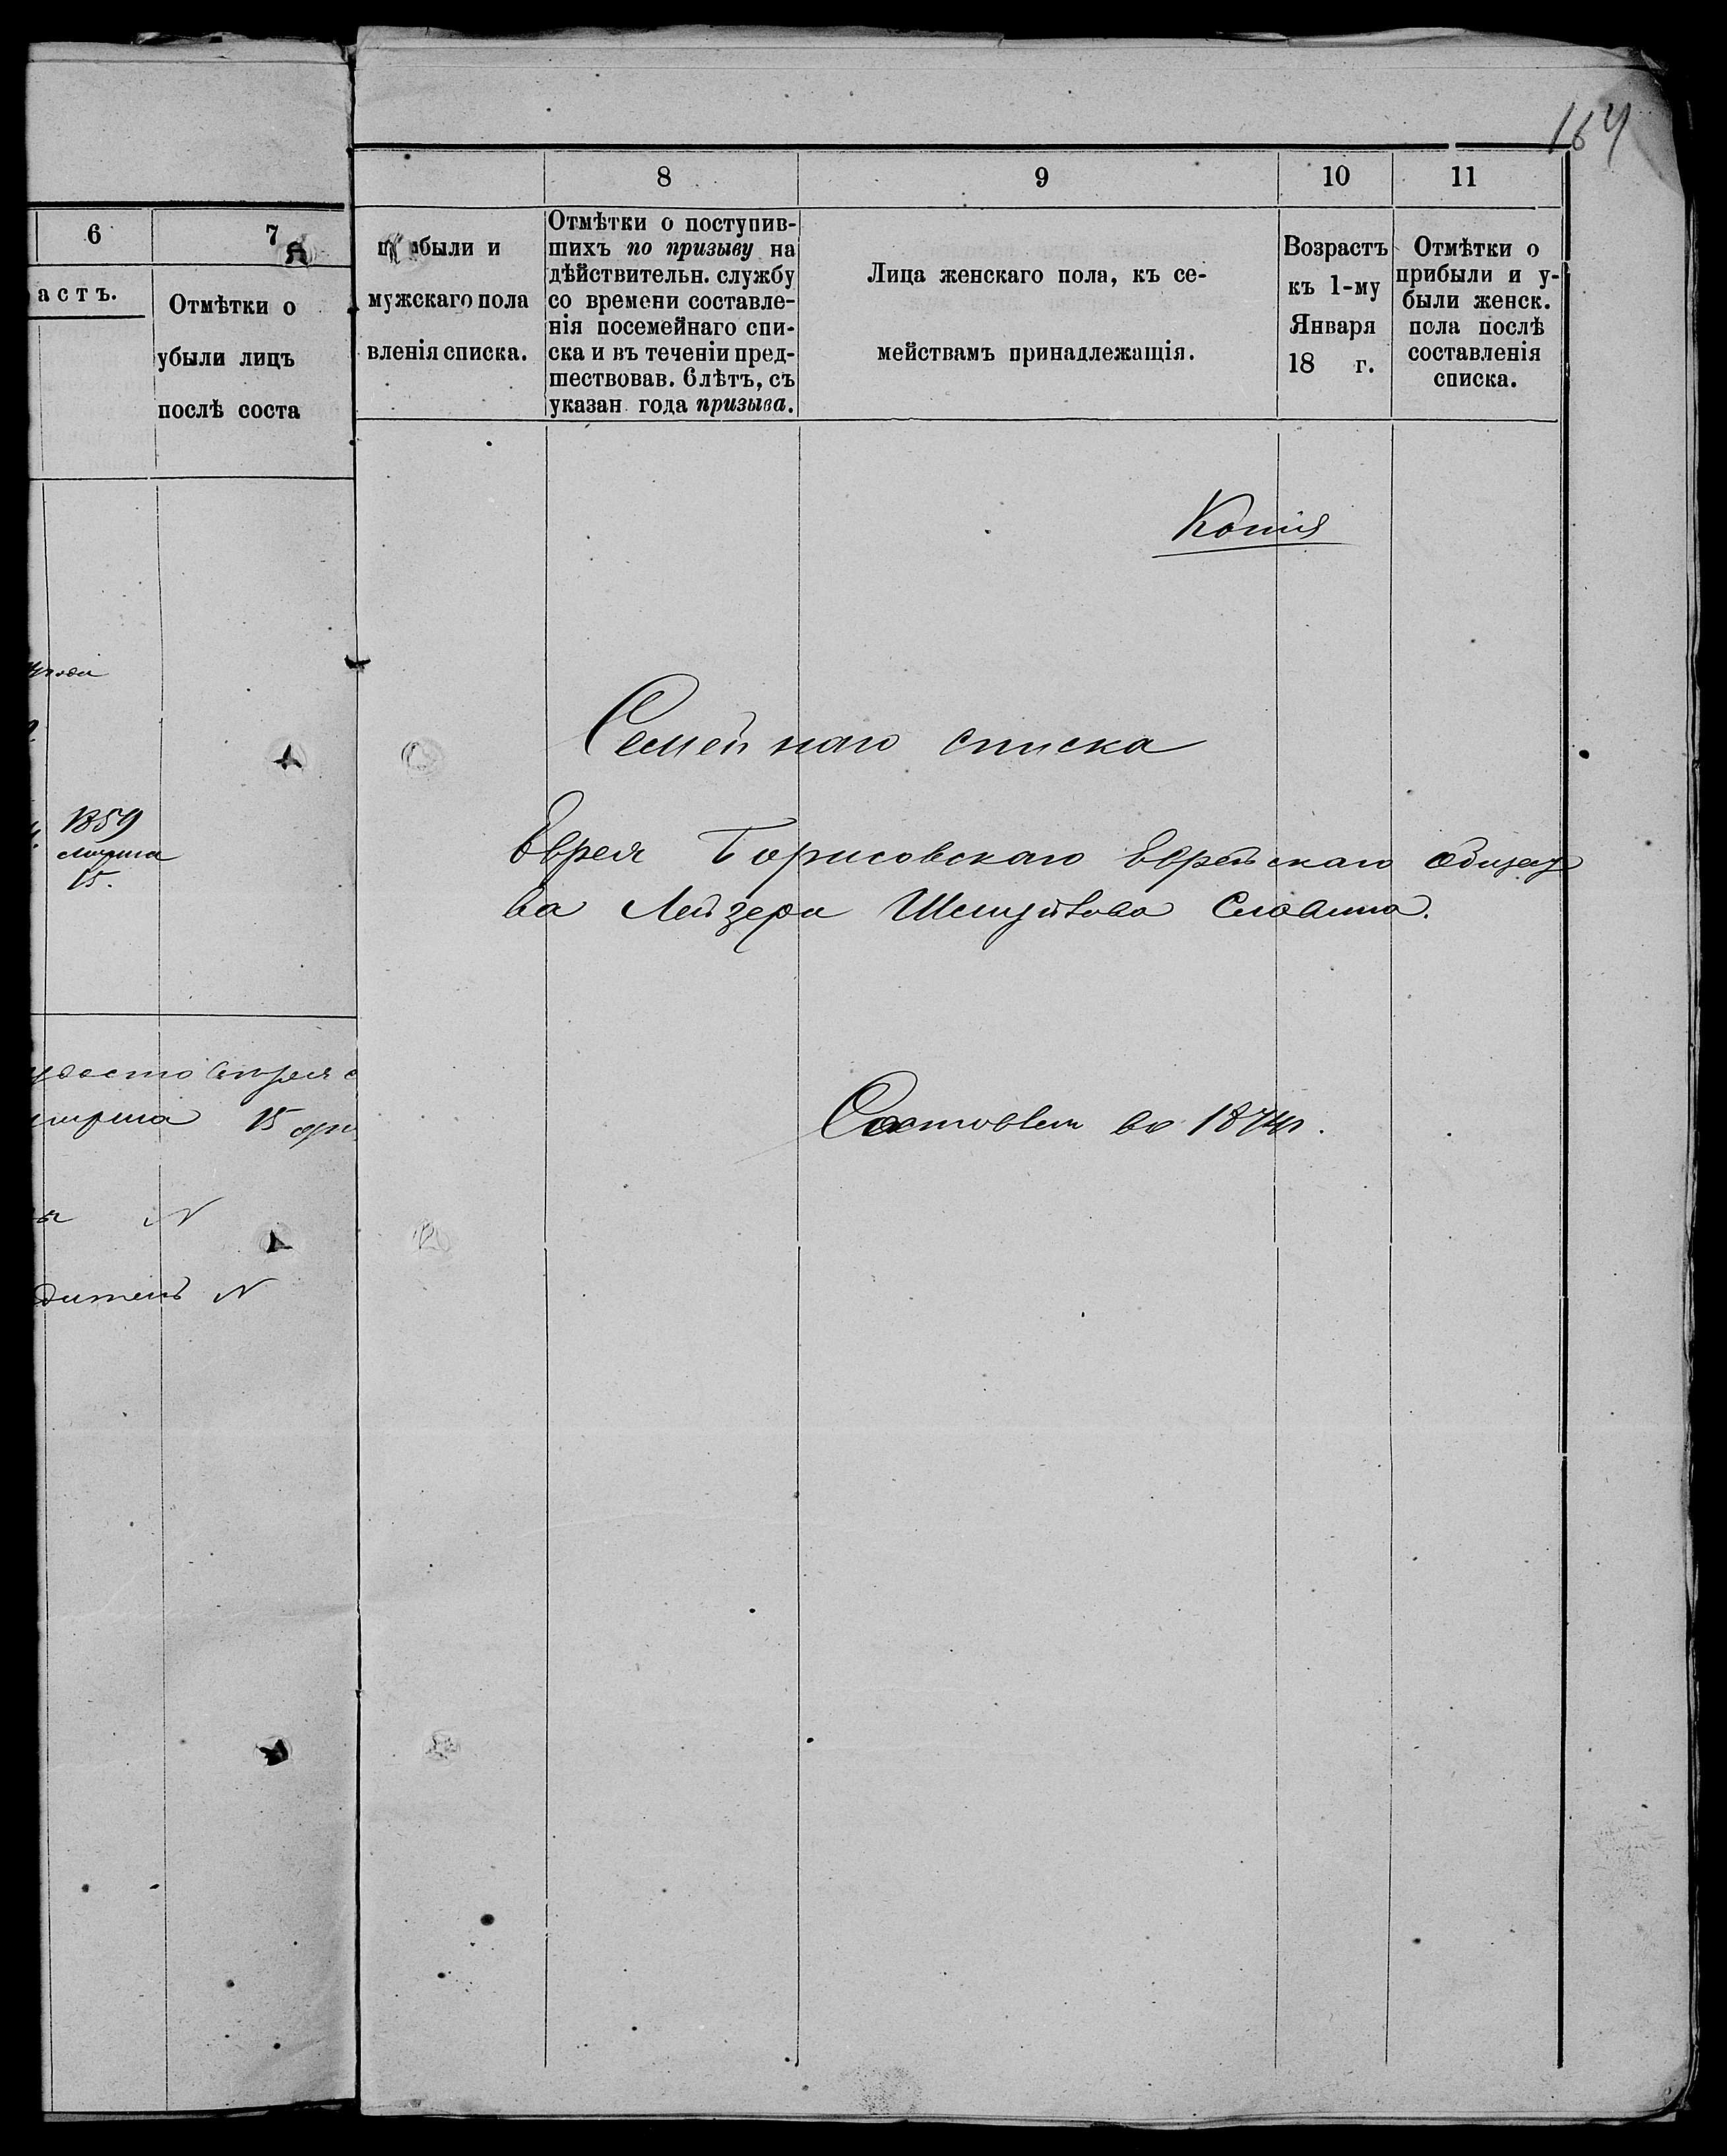 164
6
7
астъ.
Отмѣтки о
убыли лицъ
послѣ соста
1859
Марта
15.
15
N
N
8
9
10
11
прибыли и
мужскаго пола
вленія списка.
Отмѣтки о поступив-
шихъ по призыву на
дѣйствительн. службу
со времени составле-
нія посемейнаго спи-
ска и въ теченіи пред-
шествовав. 6 лѣтъ, съ
указан. года призыва.
Лица женскаго пола, къ се-
мействамъ принадлежащія.
Возрастъ
къ 1-му
Января
18 г.
Отмѣтки о
прибыли и у-
были женск.
пола послѣ
составленія
списка.
Копія
Семейнаго списка
Еврея Борисовскаго Еврейскаго общест
ва Лейзера Шмуйлова Славина.
Составлен во 1874 г.